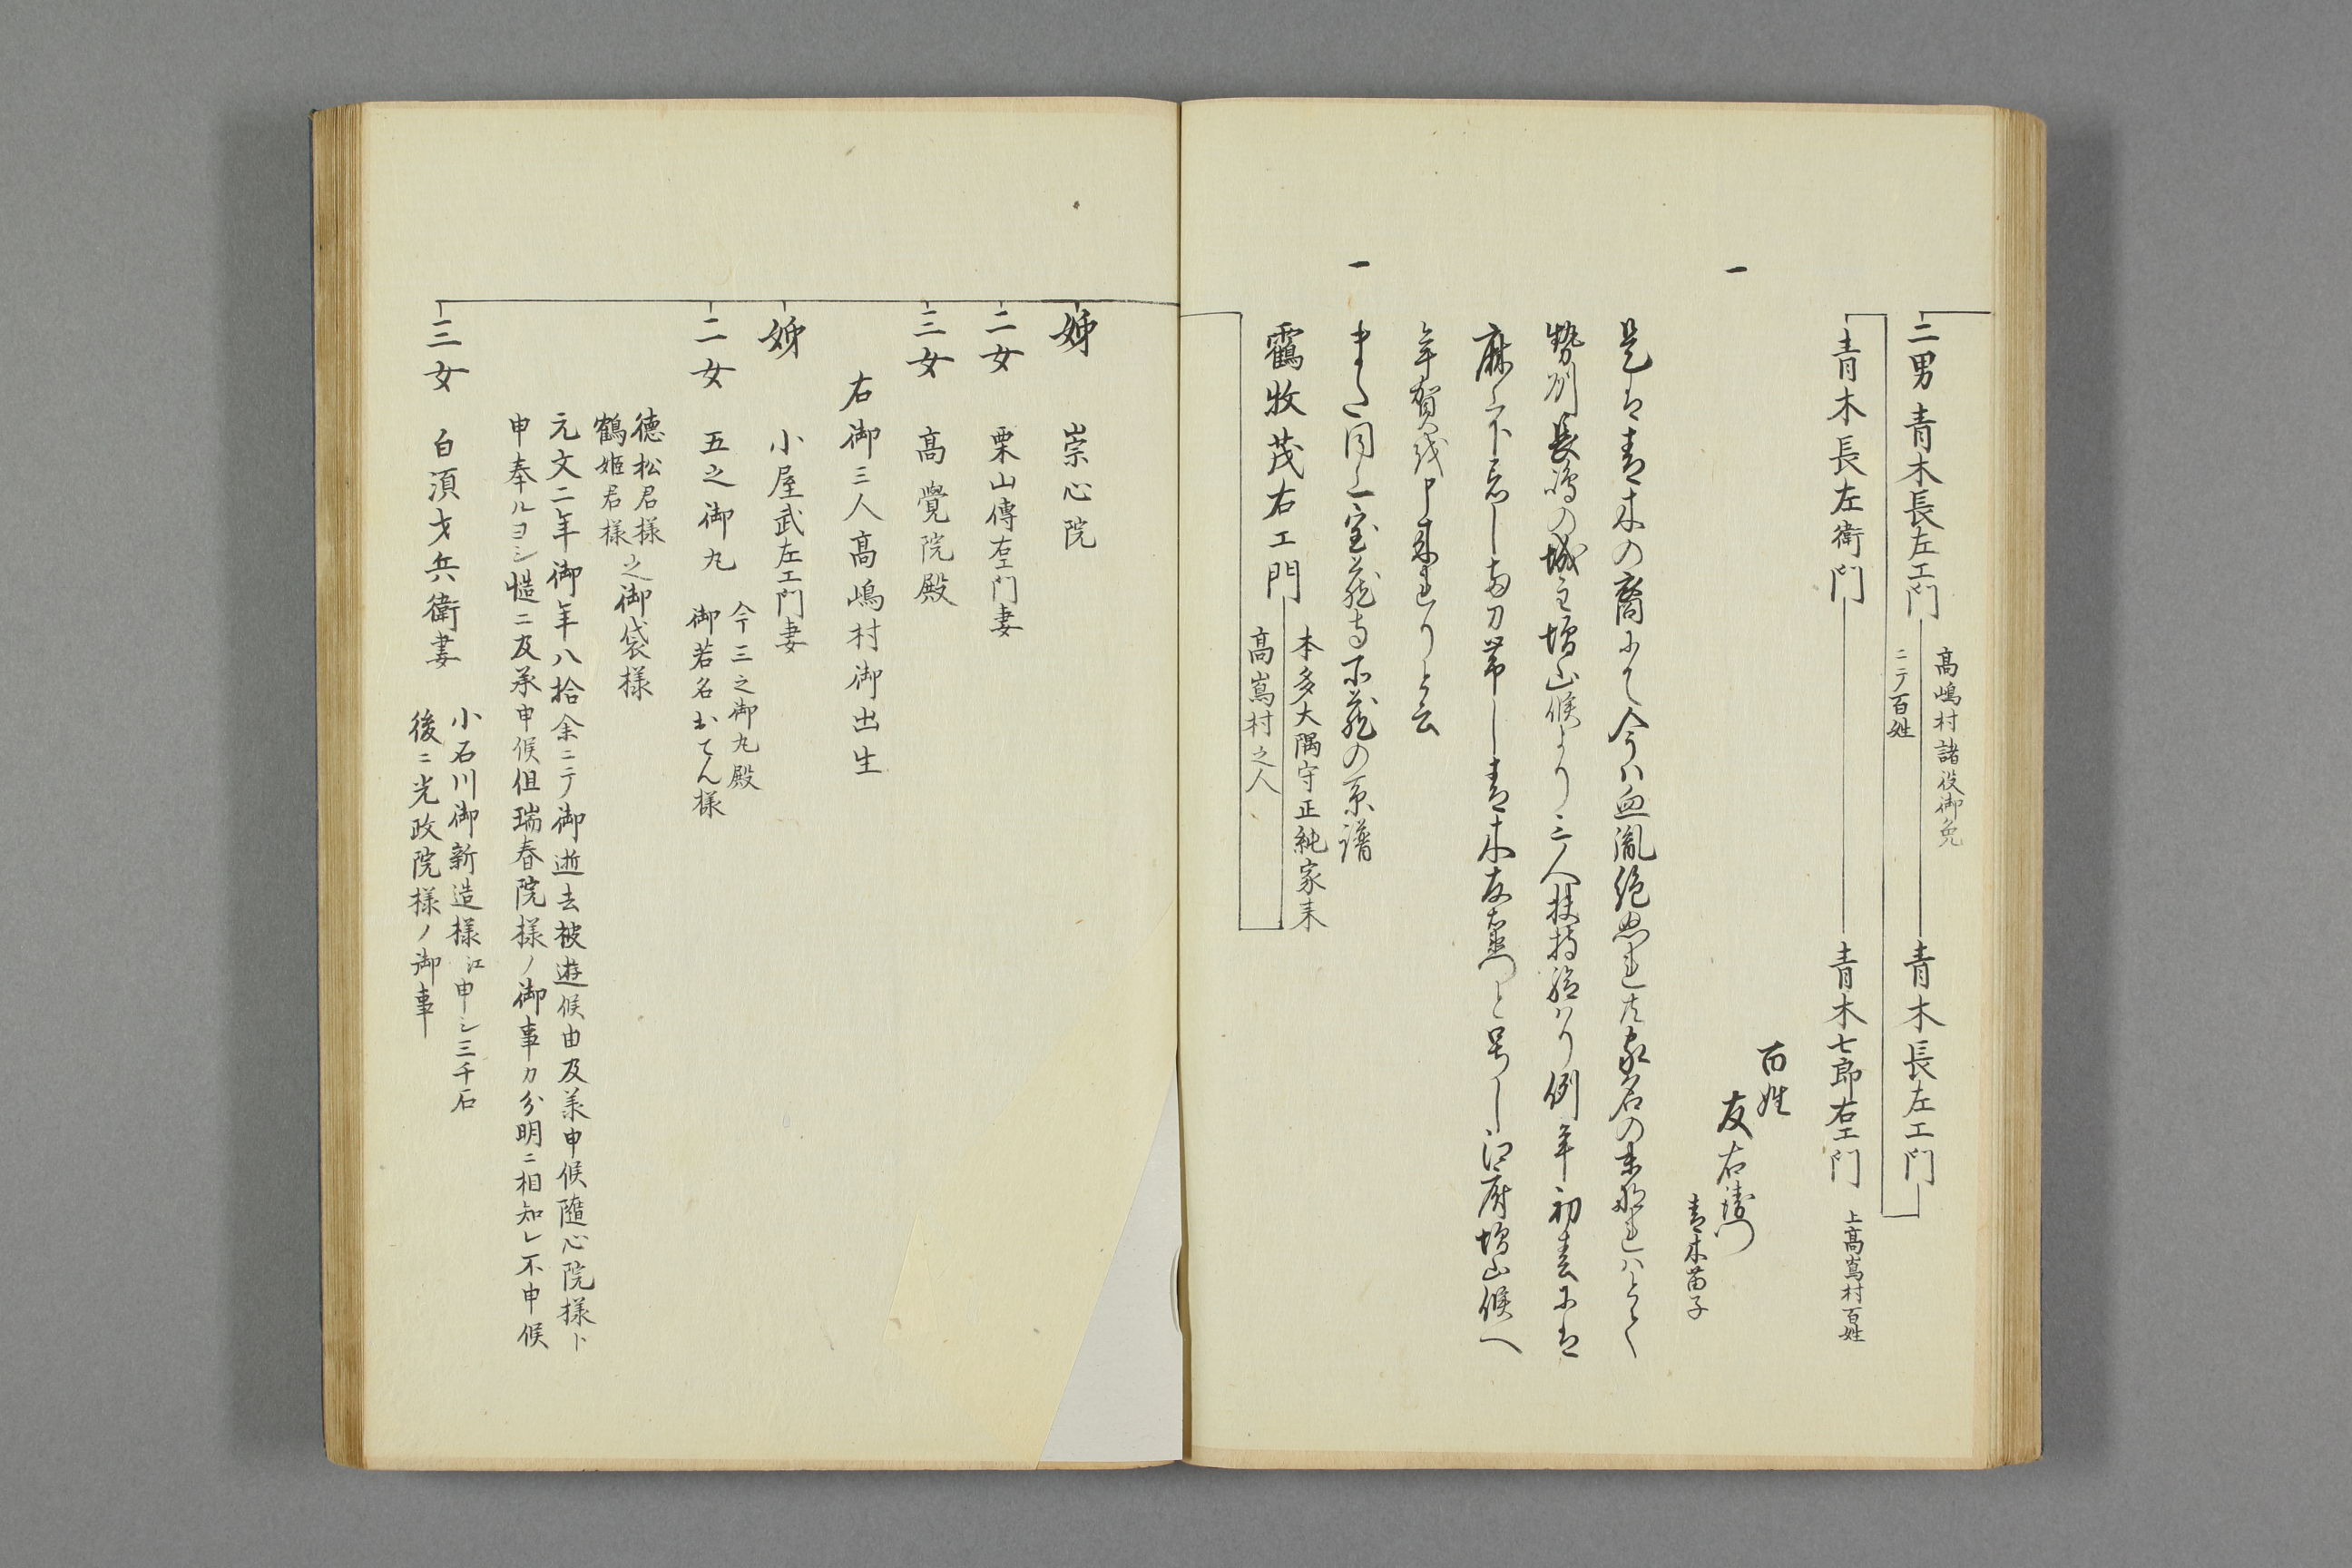 二男 青木長左エ門
高嶋村諸役御免
ニテ百姓
青木長左エ門
青木長左衛門
青木七郎右エ門
上高嶌村百姓
一
百姓
友右衛門
青木苗子
是は青木の裔にて今ハ血胤絶ぬれ共家名の
勢州長嶋の城主増山候より三人扶持給ハり例年初春には
麻上下着し両刀帯し青木友右衛門と号し江府増山候へ
年賀に来れりと云
一
また同上宝蔵寺所蔵の系譜
靏牧茂右エ門
本多大隅守正純家来
高嶌村之人
姉 崇心院
二女 栗山傳右エ門妻
三女 高覺院殿
右御三人高嶋村御出生
姉 小屋武左エ門妻
二女 五之御丸
今三之御丸殿
御若名おてん様
徳松君様
鶴姫君様
之御袋様
元文二年御年八拾余ニテ御逝去被遊候由及承申候隨心院様ト
申奉ルヨシ慥ニ及承申候但瑞春院様ノ御事カ分明ニ相知レ不申候
三女 白須才兵衛妻
小石川御新造様江申シ三千石
後ニ光政院様ノ御事